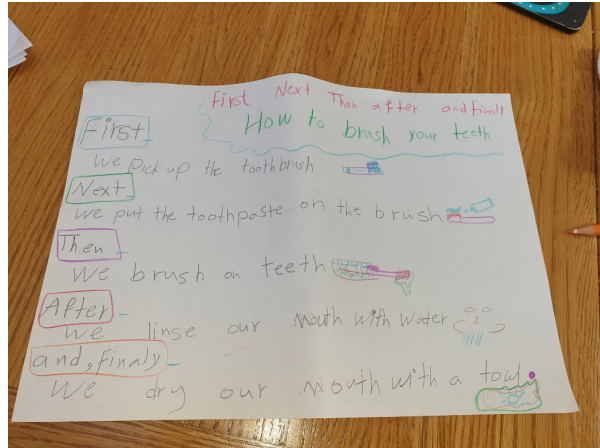 First Next Then after and Finaly
How to brush your teeth
First
We pick up the toothbrush
Next
We put the toothpaste on the brush
Then
We brush on teeth
After
We linse our mouth with water
and, Finaly
We dry our mouth with a towl.